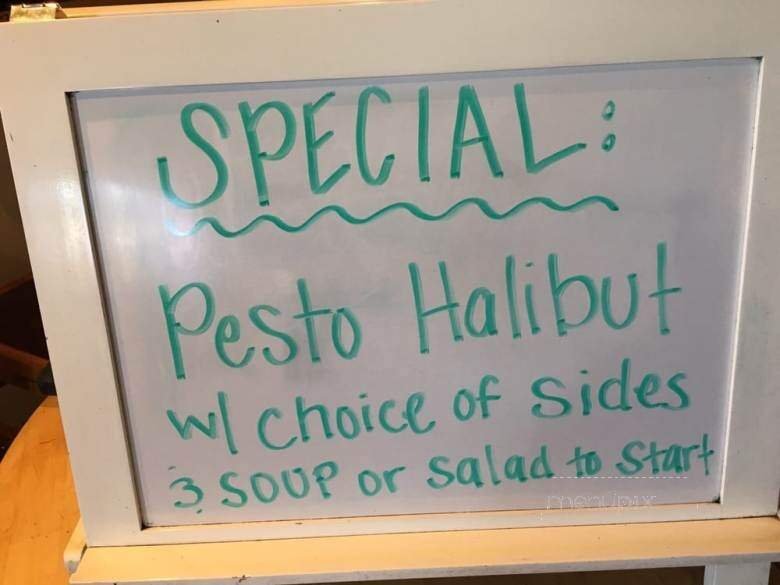 SPECIAL:
Pesto Halibut
w/ choice of sides
& SOUP or salad to start
menupix